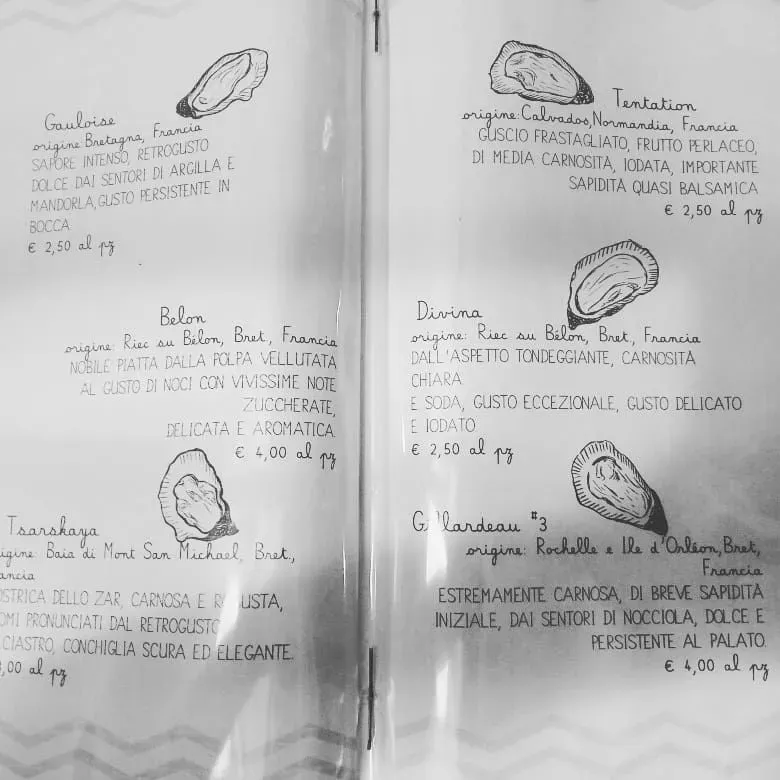 Gauloise
origine: Bretagna, Francia
SAPORE INTENSO, RETROGUSTO
DOLCE DAI SENTORI DI ARGILLA E
MANDORLA, GUSTO PERSISTENTE IN
BOCCA
€ 2,50 al pz
Belon
origine: Riec su Bélon, Bret, Francia
NOBILE PIATTA DALLA POLPA VELLUTATA
AL GUSTO DI NOCI CON VIVISSIME NOTE
ZUCCHERATE,
DELICATA E AROMATICA.
€ 4,00 al pz
Tsarskaya
igine: Baia di Mont San Michael, Bret.,
ancia
OSTRICA DELLO ZAR, CARNOSA E
OMI PRONUNCIATI DAL RETROGUSTO
CIASTRO, CONCHIGLIA SCURA ED ELEGANTE.
,00 al pz
Tentation
origine: Calvados, Normandia, Francia
GUSCIO FRASTAGLIATO, FRUTTO PERLACEO,
DI MEDIA CARNOSITÀ, IODATA, IMPORTANTE
SAPIDITÀ QUASI BALSAMICA
€ 2,50 al pz
Divina
origine: Riec su Bélon, Bret, Francia
DALL'ASPETTO TONDEGGIANTE, CARNOSITÀ
CHIARA
E SODA, GUSTO ECCEZIONALE, GUSTO DELICATO
E IODATO
€ 2,50 al pz
Gillardeau #3
origine: Rochelle e Ile d'Orléon, Bret,
Francia
ESTREMAMENTE CARNOSA, DI BREVE SAPIDITÀ
INIZIALE, DAI SENTORI DI NOCCIOLA, DOLCE E
PERSISTENTE AL PALATO.
€ 4,00 al pz